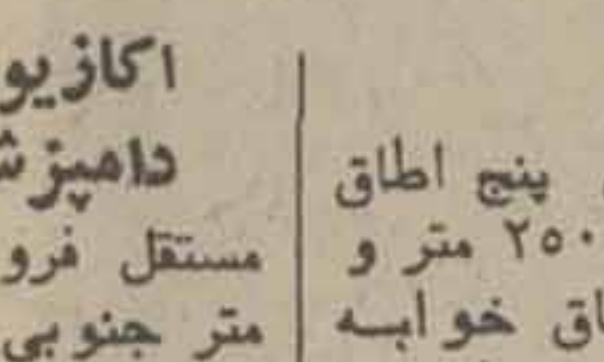 پنج اطاق
۲۵۰ متر و
خوابه
اکازیو
دامپز
مستقل فرو
متر جنوبی